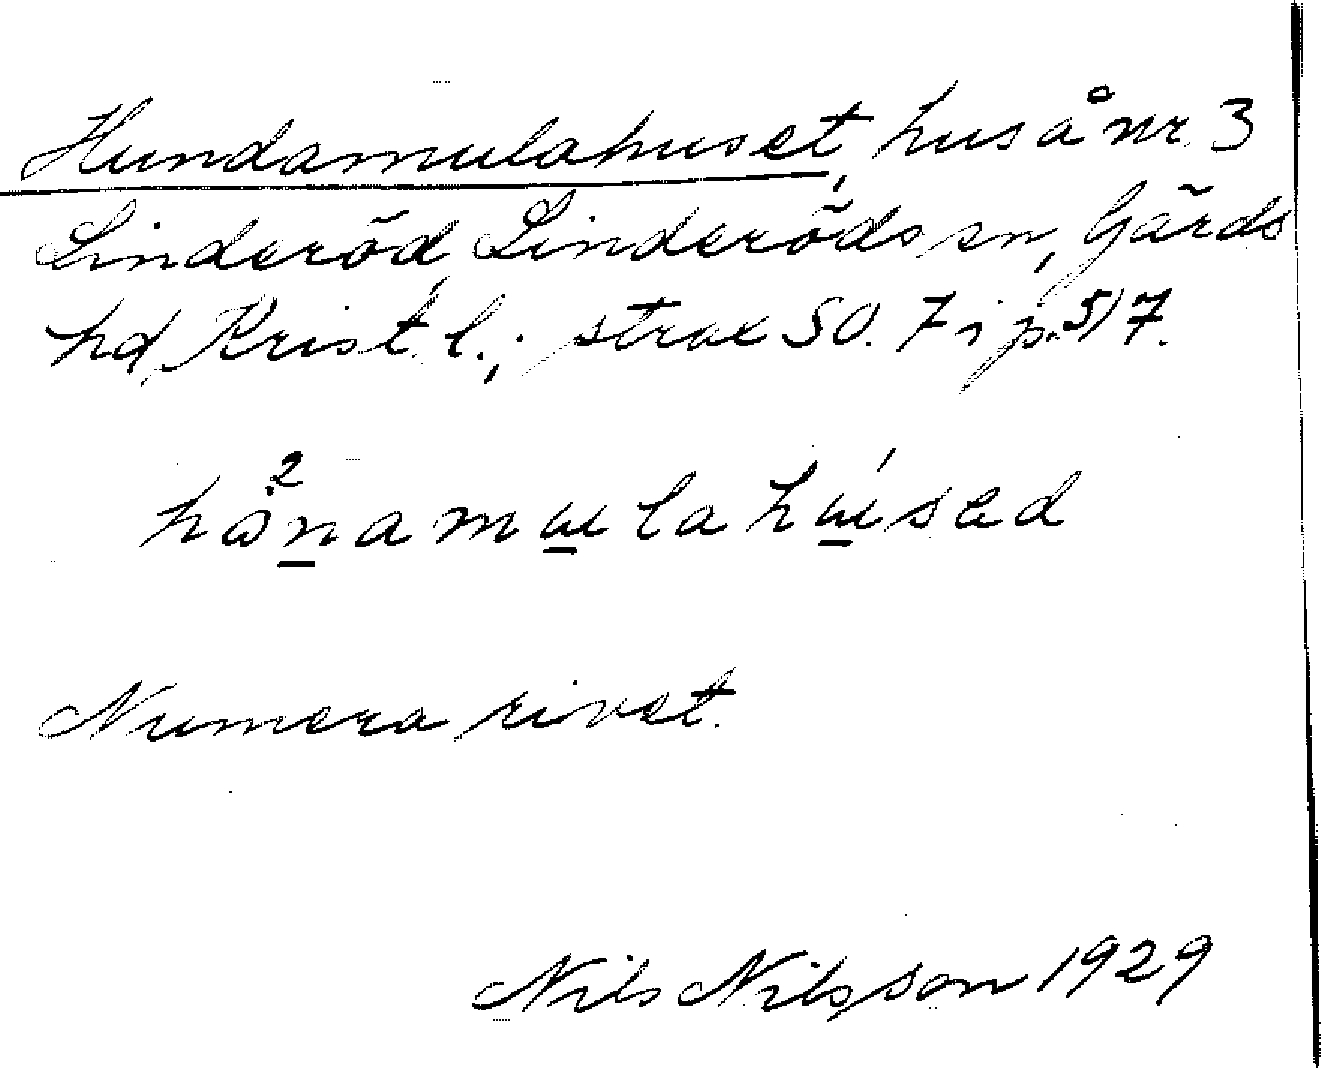 Hundamulahuset, hus å nr. 3
Linderöd, Linderöds sn, Gärds
hd, Krist. l.; strax SO. 7 i p. 5/7.
Numera rivet.
Nils Nilsson 1929